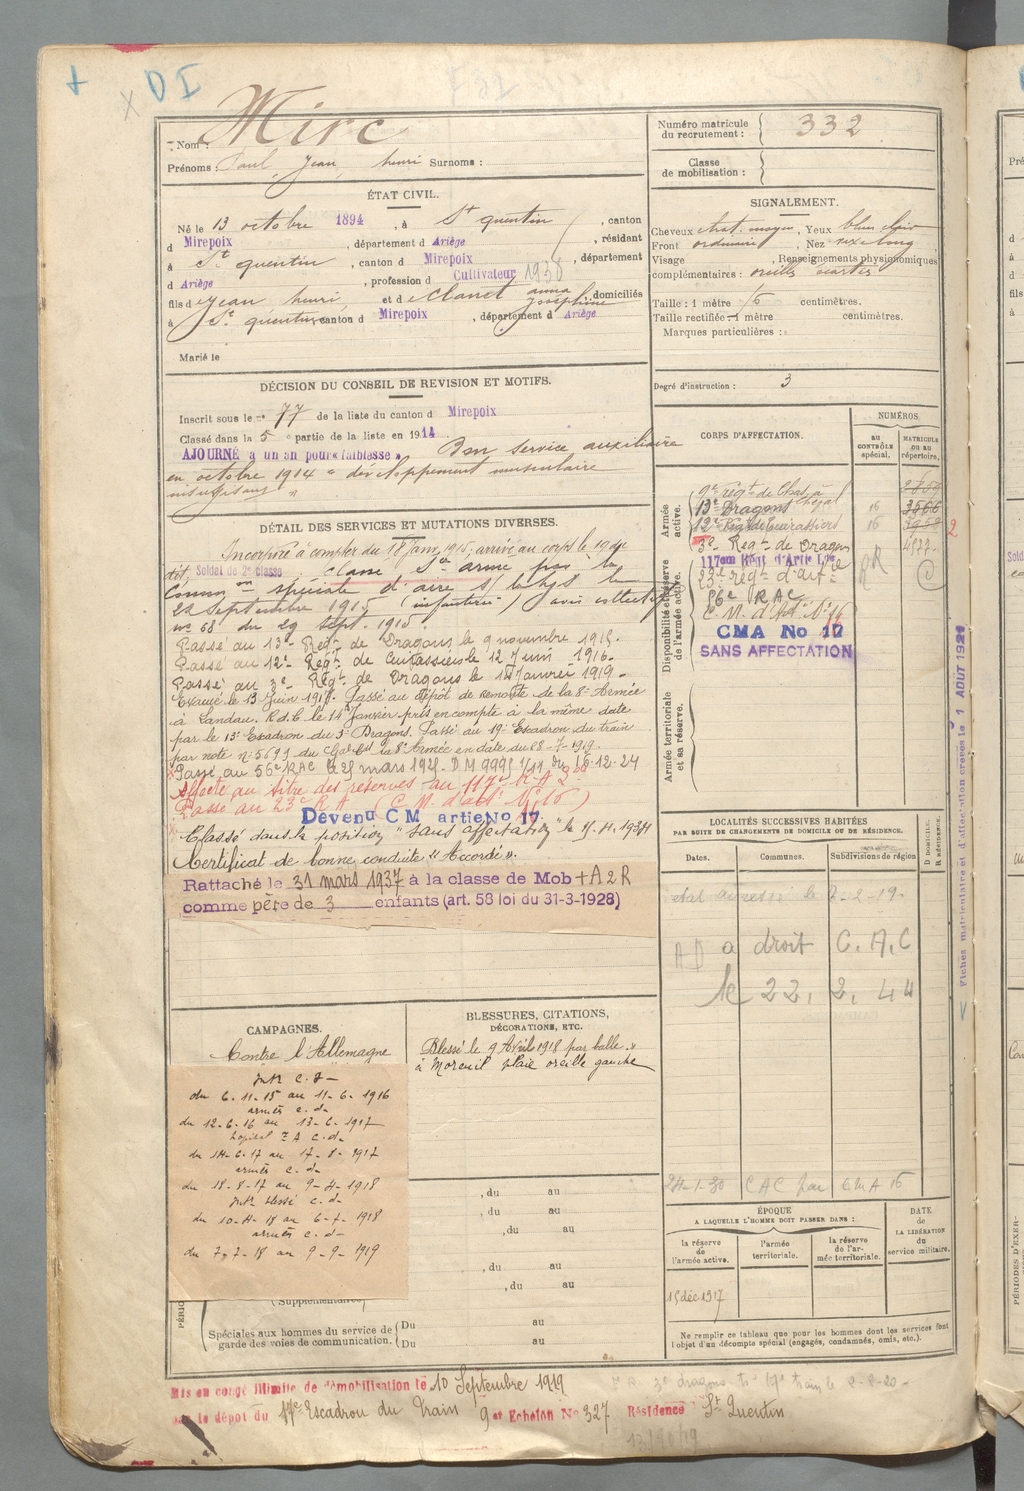 + X DI
Nom : Mirc
Prénoms : Paul, Jean, henri Surnoms :
Numéro matricule du recrutement : 332
Classe de mobilisation :
ÉTAT CIVIL.
Né le 13 octobre 1894, à St quentin, canton
d Mirepoix, département d Ariège, résidant
à St quentin, canton d Mirepoix, département
d Ariège, profession d Cultivateur 1938
fils d jean henri et d Clanet anna Joséphine domiciliés
à St quentin canton d Mirepoix, département d Ariège
Marié le
SIGNALEMENT.
Cheveux chat. moyen, Yeux bleu clair
Front ordinaire, Nez
Visage , Renseignements physionomiques
complémentaires : oreilles écartées
Taille : 1 mètre 16 centimètres.
Taille rectifiée : 1 mètre centimètres.
Marques particulières :
Degré d'instruction : 3
DÉCISION DU CONSEIL DE REVISION ET MOTIFS.
Inscrit sous le n° 77 de la liste du canton d Mirepoix
Classé dans la 5 e partie de la liste en 1914
AJOURNÉ à un an pour « faiblesse » Bon service auxiliaire
en octobre 1914 " développement musculaire
insuffisant "
DÉTAIL DES SERVICES ET MUTATIONS DIVERSES.
Incorporé à compter du 18 Janv. 1915, arrivé au corps le 19 du
dit, Soldat de 2e classe Classé Sce armé par la
Common spéciale d'
22 Septembre 1915 (infanterie) avis collectif
no 68 du 29 Sept. 1915.
Passé au 13e Régt de Dragons le 9 novembre 1915.
Passé au 12e Régt de Cuirassiers le 12 Juin 1916-
Passé au 3e Régt de Dragons le 1er Janvier 1919-
Evacué le 13 Juin 1917. Passé au dépôt de remonte de la 8e Armée
à Landau. R.d.C le 14 Janvier pris en compte à la même date
par le 13e Escadron du 3e Dragons. Passé au 19e Escadron du train
par note no 5691 du Gal Ct la 8e Armée en date du 28-7-1919.
Passé au 56e RAC le 25 mars 1925. D M 9995 1/11 du 16-12-24
Affecté au titre des réserves au 117e R A L
Passé au 23e R A (C. M. d'art No 16)
Devenu C M artie No 17
Classé dans la position "sans affectation" le 15.4.1934
Certificat de bonne conduite "Accordé".
Rattaché le 31 mars 1937 à la classe de Mob + A 2 R
comme père de 3 enfants (art. 58 loi du 31-3-1928)
CORPS D'AFFECTATION.
NUMÉROS.
au contrôle spécial.
matricule ou au répertoire.
Armée active.
9e régt de Chas. à cheval
13e Dragons 16 3566
12e Régt de Cuirassiers 16
3e Regt. de Dragon 4577
Disponibilité et réserve de l'armée active.
117em Régt d'Artie Lde RR
23e régt d'artie
56e RAC
C. M. d'art. No 16
CMA No 17
SANS AFFECTATION
Armée territoriale et sa réserve.
LOCALITÉS SUCCESSIVES HABITÉES
PAR SUITE DE CHANGEMENTS DE DOMICILE OU DE RÉSIDENCE.
Dates. Communes. Subdivisions de région
D DOMICILE.
R RÉSIDENCE.
état adressé le 7-2-19.
AD a droit C.A.C
le 22, 2, 44
24-1-30 CAC par CMA 16
CAMPAGNES.
Contre l'Allemagne
Intr C. D-
du 6-11-15 au 11-6-1916
armés c. d-
du 12-6-16 au 13-6-1917
hopital Z A C. d-
du 14-6-17 au 17-8-1917
armés c. d-
du 18-8-17 au 9-4-1918
Intr blessé c. d-
du 10-4-18 au 6-7-1918
armés c. d-
du 7-7-18 au 9-9-1919
BLESSURES, CITATIONS,
DÉCORATIONS, ETC.
Blessé le 9 Avril 1918 par balle "
à Moreuil plaie oreille gauche
, du au
, du au
, du au
, du au
, du au
(Supplémentaires)
Spéciales aux hommes du service de garde des voies de communication.
Du au
Du au
ÉPOQUE
A LAQUELLE L'HOMME DOIT PASSER DANS :
la réserve de l'armée active.
l'armée territoriale.
la réserve de l'armée territoriale.
DATE
de
LA LIBÉRATION
du
service militaire.
15 déc 1917
Ne remplir ce tableau que pour les hommes dont les services font
l'objet d'un décompte spécial (engagés, condamnés, omis, etc.).
Mis en congé illimité de démobilisation le 10 Septembre 1919
par le dépôt du 17e Escadron du Train 9em Echelon No 327 Résidence St Quentin
13/10/19
Fiches matriculaire et d'affectation créées le 1 AOUT 1921
PÉRIODES D'EXER-